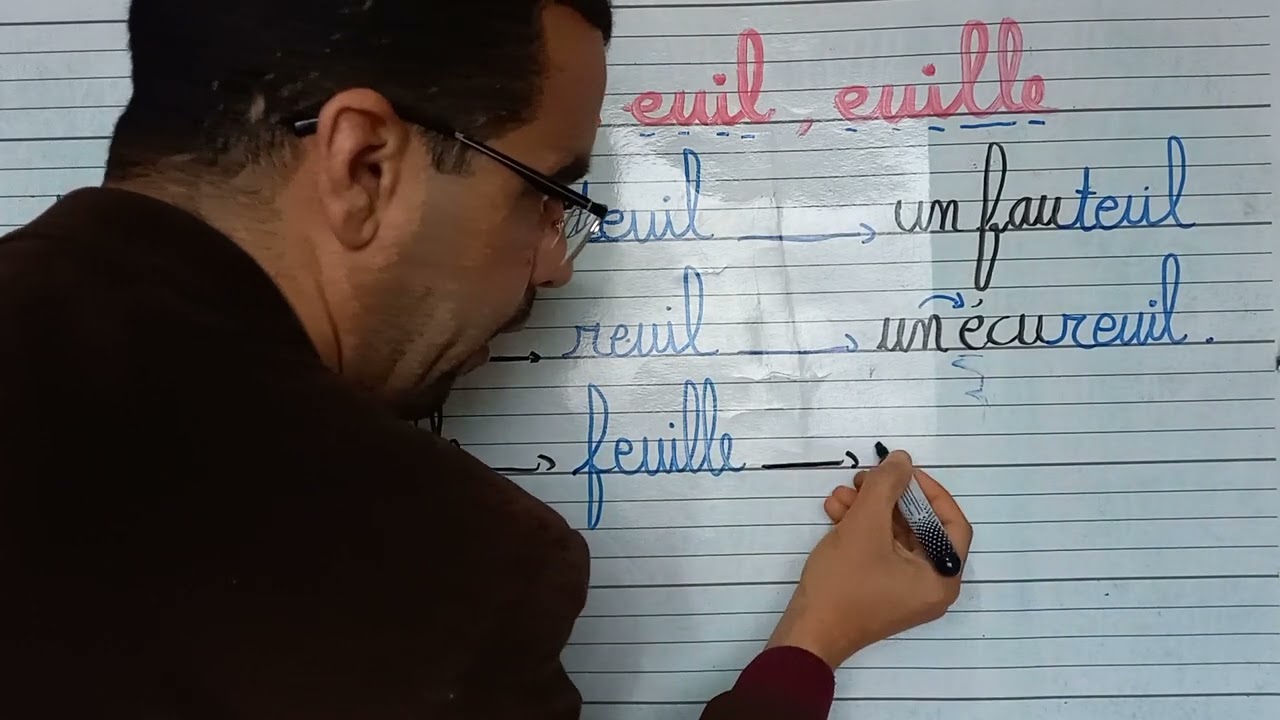 euil , euille
teuil → un fauteuil
→ reuil → un écureuil .
→ feuille →